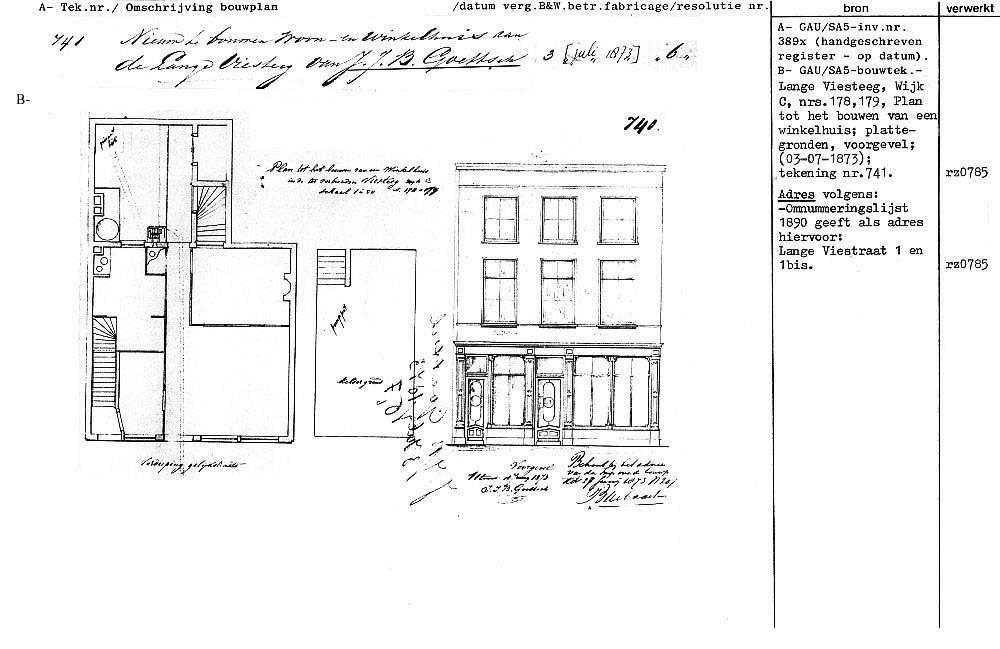 A- Tek.nr./ Omschrijving bouwplan /datum verg.B&W.betr.fabricage/resolutie nr.
bron
verwerkt
741 Nieuw te bouwen Woon- en Winkelhuis aan
de Lange Viesteeg van J. J. B. Goettsch 3 [juli 1873] 6
B-
740.
Plan tot het bouwen van een Winkelhuis
in de Viesteeg wyk C
schaal 1 à 50 n. 178-179
keldergrond
Verdieping gelijkstraats
Voorgevel
1873
J. J. B. Goettsch
Behoort bij het adres
A- GAU/SA5-inv.nr.
389x (handgeschreven
register - op datum).
B- GAU/SA5-bouwtek.-
Lange Viesteeg, Wijk
C, nrs.178,179, Plan
tot het bouwen van een
winkelhuis; platte-
gronden, voorgevel;
(03-07-1873);
tekening nr.741.
rz0785
Adres volgens:
-Omnummeringslijst
1890 geeft als adres
hiervoor:
Lange Viestraat 1 en
1bis.
rz0785